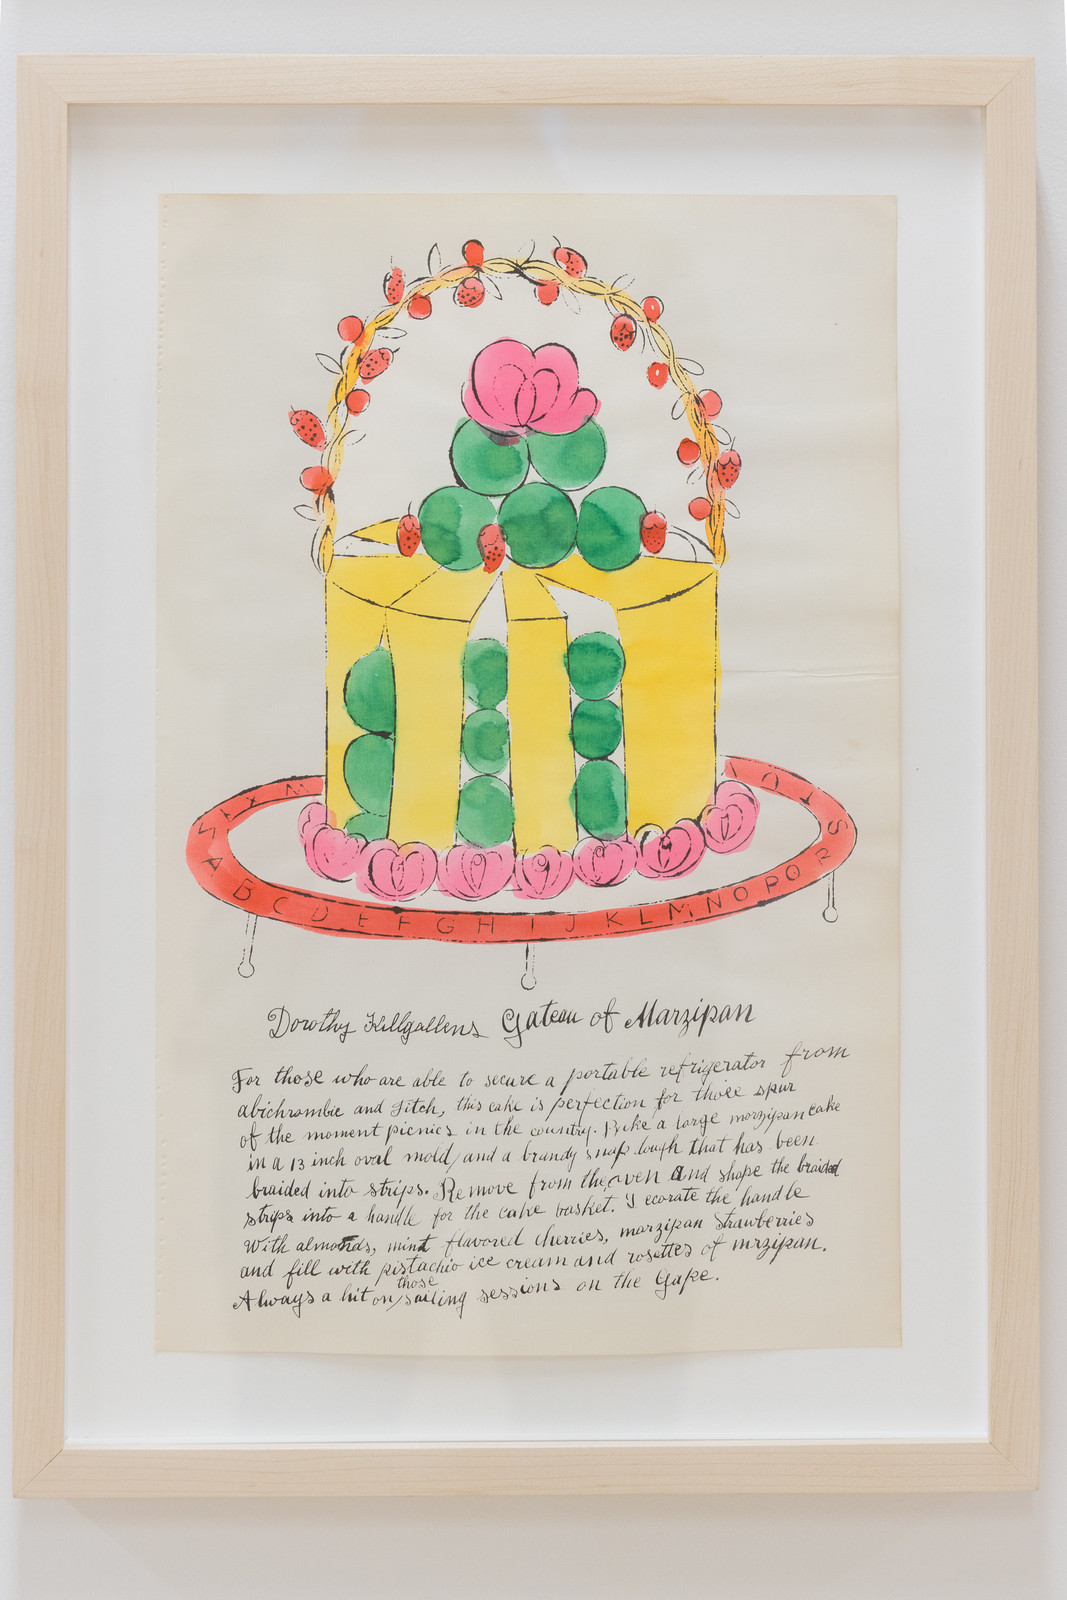 W X Y Z A B C D E F G H I J K L M N O P Q R S T U V
Dorothy Killgallens Gateau of Marzipan
For those who are able to secure a portable refrigerator from
abichrombie and Fitch, this cake is perfection for those spur
of the moment picnics in the country. Bake a large marzipan cake
in a 13 inch oval mold, and a brandy snap dough that has been
braided into strips. Remove from the oven and shape the braided
strips into a handle for the cake basket. Decorate the handle
With almonds, mint flavored cherries, marzipan strawberries
and fill with pistachio ice cream and rosettes of mrzipan.
Always a hit on those sailing sessions on the Gape.